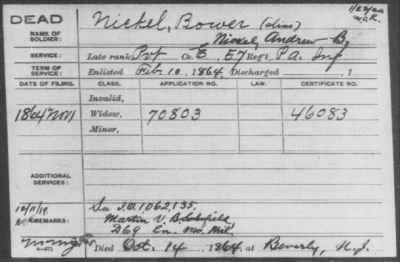 DEAD
Nickel, Bower (alias)
NAME OF SOLDIER:
Nickel, Andrew B.
SERVICE:
Late rank, Pvt Co. E, 57 Reg't Pa. Inf
TERM OF SERVICE:
Enlisted Feb. 10, 1864, Discharged , 1
DATE OF FILING. CLASS. APPLICATION NO. LAW. CERTIFICATE NO.
Invalid,
1864 Nov 1 Widow, 70803 46083
Minor,
ADDITIONAL SERVICES:
REMARKS:
See 1062,135.
Martin V. B.
D 69 En. Mo. Mil.
Died Oct. 14, 1864, at Beverly, N.J.